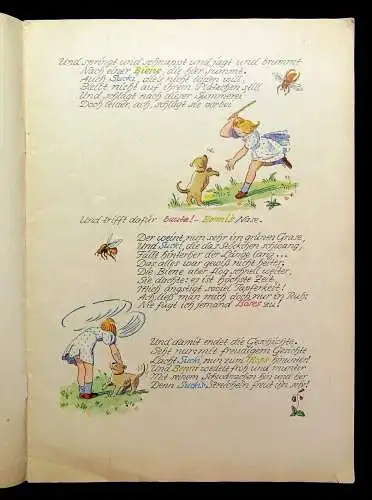 Und springt und schnappt und jagt und brummt
Nach einer Biene, die hier summt.
Auch Sucki, die's nicht leiden will,
Bleibt nicht auf ihrem Plätzchen still
Und schlägt nach dieser Summerei
Doch leider, ach, schlägt sie vorbei
Und trifft dafür bautz! - Benni's Nase.
Der weint nun sehr im grünen Grase,
Und Sucki, die das Stöckchen schwang,
Fällt hinterher der Länge lang...
Das alles war gewiß nicht heiter.
Die Biene aber flog schnell weiter,
Sie dachte: es ist höchste Zeit,
Mich ängstigt soviel Tapferkeit!
Ach ließ man mich doch nur in Ruh:
Nie fügt' ich jemand Böses zu!
Und damit endet die Geschichte.
Seht nur mit freudigem Gesichte
Lacht Sucki nun zum Hündchen
Und Benni wedelt froh und munter
Mit seinem Schwänzchen hin und her
Denn Sucki's Streicheln freut ihn sehr!